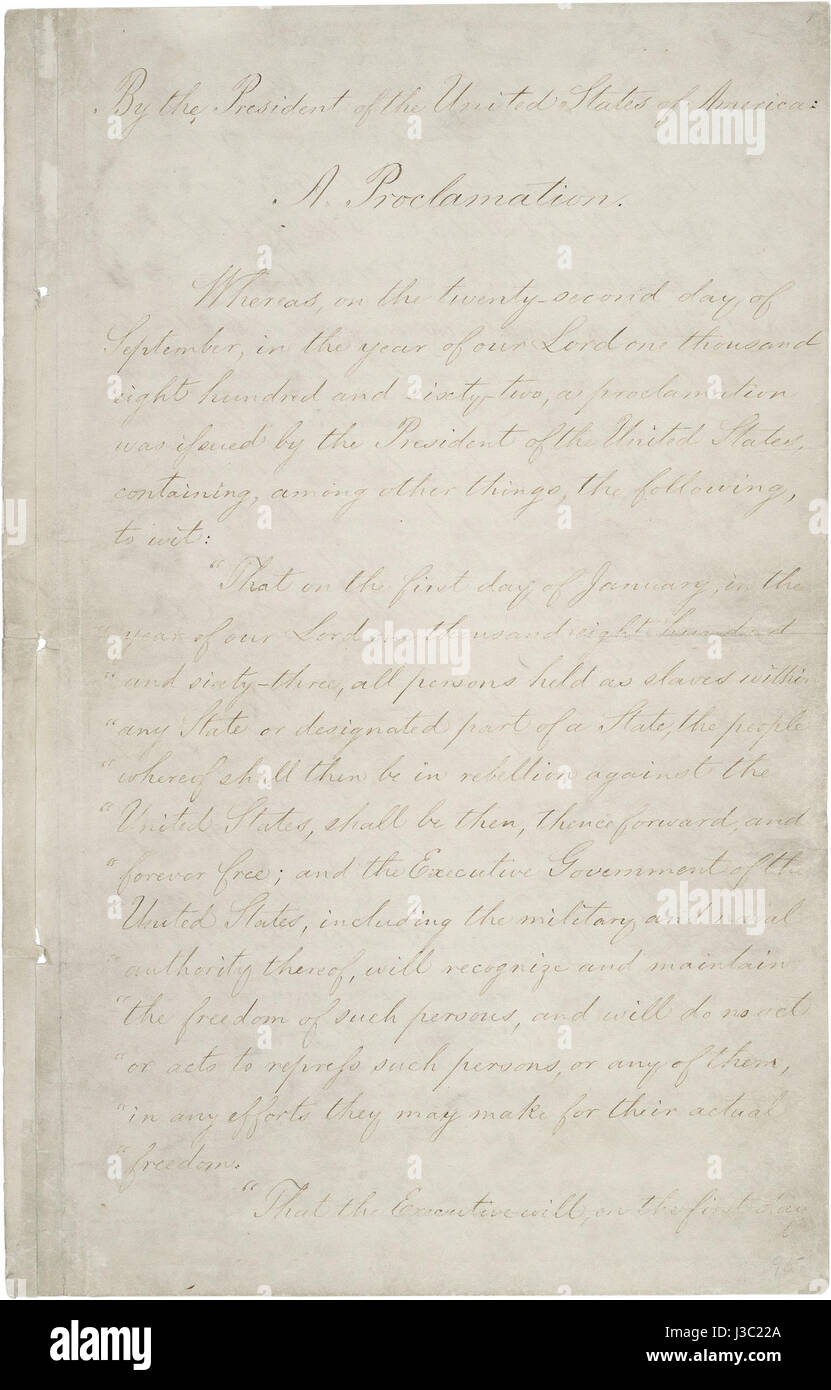 By the President of the United States of America:
A Proclamation.
Whereas, on the twenty-second day of
September, in the year of our Lord one thousand
eight hundred and sixty-two, a proclamation
was issued by the President of the United States,
containing, among other things, the following,
to wit:
"That on the first day of January, in the
"year of our Lord one thousand eight hundred
"and sixty-three, all persons held as slaves within
"any State or designated part of a State, the people
"whereof shall then be in rebellion against the
"United States, shall be then, thenceforward, and
"forever free; and the Executive Government of the
United States, including the military and naval
"authority thereof, will recognize and maintain
"the freedom of such persons, and will do no act
"or acts to repress such persons, or any of them,
"in any efforts they may make for their actual
"freedom.
"That the Executive will, on the first day
95
alamy
alamy stock photo
J3C22A
www.alamy.com